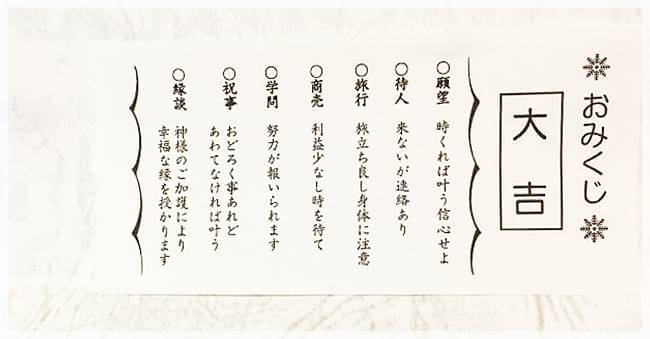 おみくじ
大吉
○願望　時くれば叶う信心せよ
○待人　来ないが連絡あり
○旅行　旅立ち良し身体に注意
○商売　利益少なし時を待て
○学問　努力が報いられます
○祝事　おどろく事あれど
あわてなければ叶う
○縁談　神様のご加護により
幸福な縁を授かります